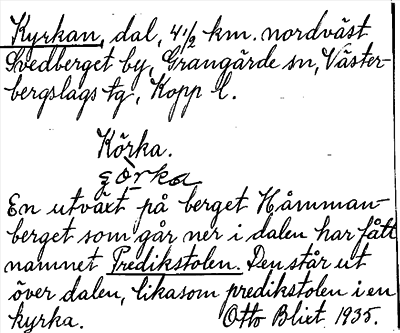 Kyrkan, dal, 4 1/2 km. nordväst
Svedberget by, Grangärde sn, Väster-
bergslags tg, Kopp l.
Körka.
En utväxt på berget Håmman-
berget som går ner i dalen har fått
namnet Predikstolen. Den står ut
över dalen, likasom predikstolen i en
kyrka. Otto Blixt 1935.